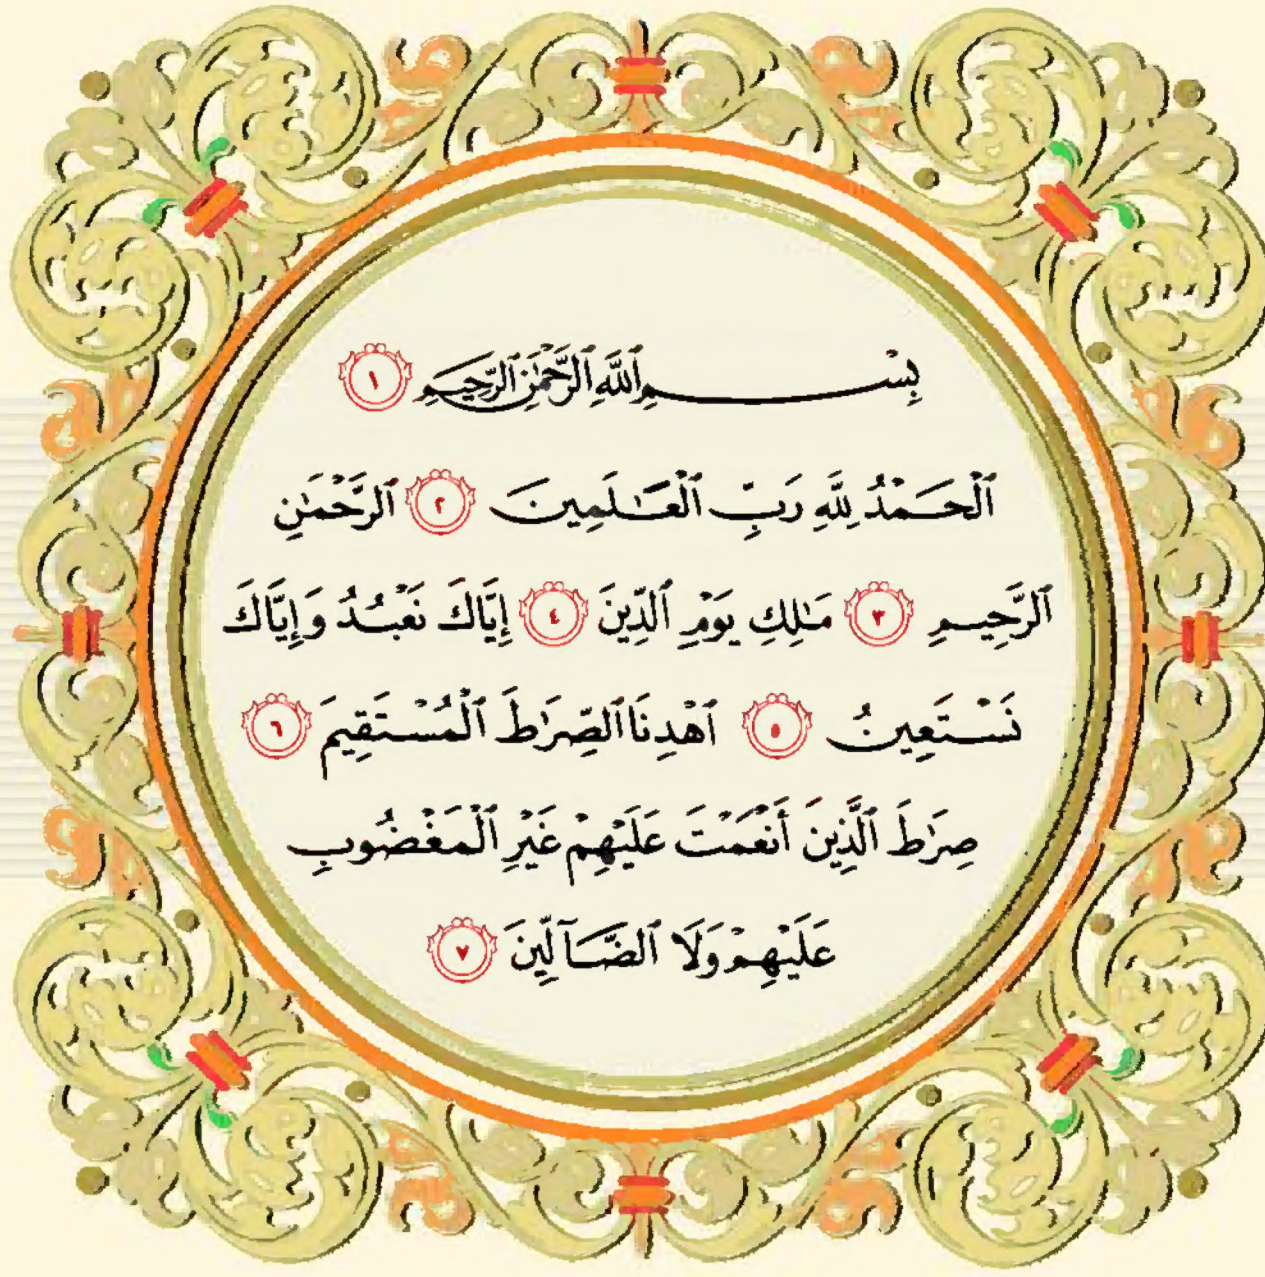 بِسْمِ ٱللَّهِ ٱلرَّحْمَٰنِ ٱلرَّحِيمِ ١
ٱلْحَمْدُ لِلَّهِ رَبِّ ٱلْعَـٰلَمِينَ ٢ ٱلرَّحْمَٰنِ
ٱلرَّحِيمِ ٣ مَـٰلِكِ يَوْمِ ٱلدِّينَ ٤ إِيَّاكَ نَعْبُدُ وَإِيَّاكَ
نَسْتَعِينُ ٥ ٱهْدِنَا ٱلصِّرَٰطَ ٱلْمُسْتَقِيمَ ٦
صِرَٰطَ ٱلَّذِينَ أَنْعَمْتَ عَلَيْهِمْ غَيْرِ ٱلْمَغْضُوبِ
عَلَيْهِمْ وَلَا ٱلضَّآلِّينَ ٧